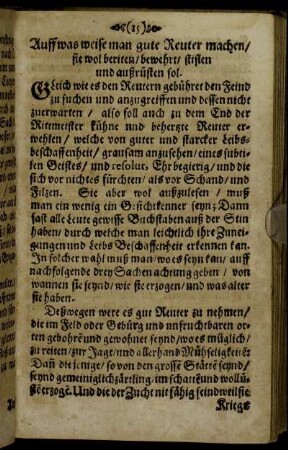 (15)
Auff was weise man gute Reuter machen/
sie wol beriten/bewehrt/ stiflen
und außrüsten sol.
Gleich wie es den Reutern gebühret den Feind
zu suchen und anzugreiffen und dessen nicht
zuerwarten / also soll auch zu dem End der
Rittmeister kühne und beherzte Reuter er-
wehlen / welche von guter und starcker Leibs-
beschaffenheit / grausam anzusehen / eines subti-
len Geistes / und resolut, Ehrbegierig / und die
sich vor nichtes fürchten / als vor Schand / und
Filzen. Sie aber wol außzulesen / muß
man ein wenig ein Gesichtkenner seyn; Dann
fast alle Leute gewisse Buchstaben auß der Stirn
haben / durch welche man leichtlich ihre Zunei-
gungen und Leibs Beschaffenheit erkennen kan.
In solcher wahl muß man / wo es seyn kan / auff
nachfolgende drey Sachen achtung geben / von
wannen sie seynd / wie sie erzogen / und was alter
sie haben.
Deßwegen were es gut Reuter zu nehmen /
die im Feld oder Gebürg und unfruchtbaren or-
ten gebohrē und gewohnet seynd / wo es müglich /
zu reiten / zur Jagt / und allerhand Mühseligkeitē:
Dañ die jenige / so von den grosse Stätte seynd /
seynd gemeiniglich zärtling / im schattē und wollü-
stē erzogē. Und die der Zucht nit fähig sein dweil sie
Kriegs